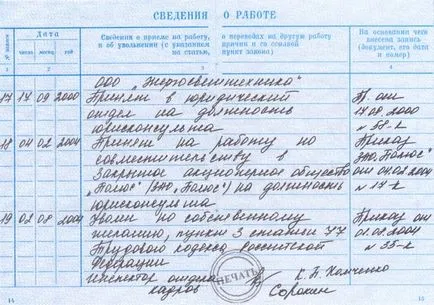 СВЕДЕНИЯ О РАБОТЕ
№ записи
Дата
число месяц год
Сведения о приеме на работу, о переводах на другую работу
и об увольнении (с указанием причин и со ссылкой
на статью, пункт закона)
На основании чего
внесена запись
(документ, его дата
и номер)
1 2 3 4
ООО "Энергосветтехника"
17 17 09 2000 Принят в юридический Пр. от
отдел на должность 17.09.2000
юрисконсульта № 58-к
18 04 02 2004 Принят на работу по Приказ
совместительству в ЗАО "Полюс"
Закрытое акционерное общество от 04.02.2004
"Полюс" (ЗАО "Полюс") на должность № 17-к
юрисконсульта
19 02 08 2004 Уволен по собственному Приказ от
желанию, пункт 3 статьи 77 01.08.2004
Трудового кодекса Российской № 35-к
Федерации
Инспектор отдела К.П. Хомченко
кадров Сорокин
ПЕЧАТЬ
14 15